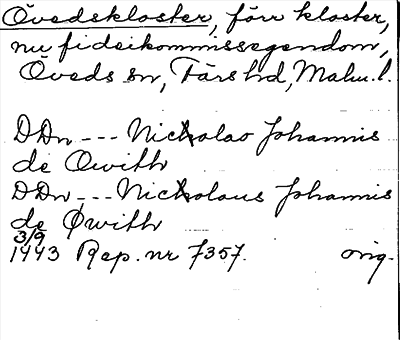 Övedskloster, förr kloster,
nu fideikommissegendom,
Öveds sn, Färs hd, Malm. l.
DDn --- Nickolao Johannis
de Øwith
DDn --- Nickolaus Johannis
de Øwith
3/9
1443 Rep. nr 7357. orig.